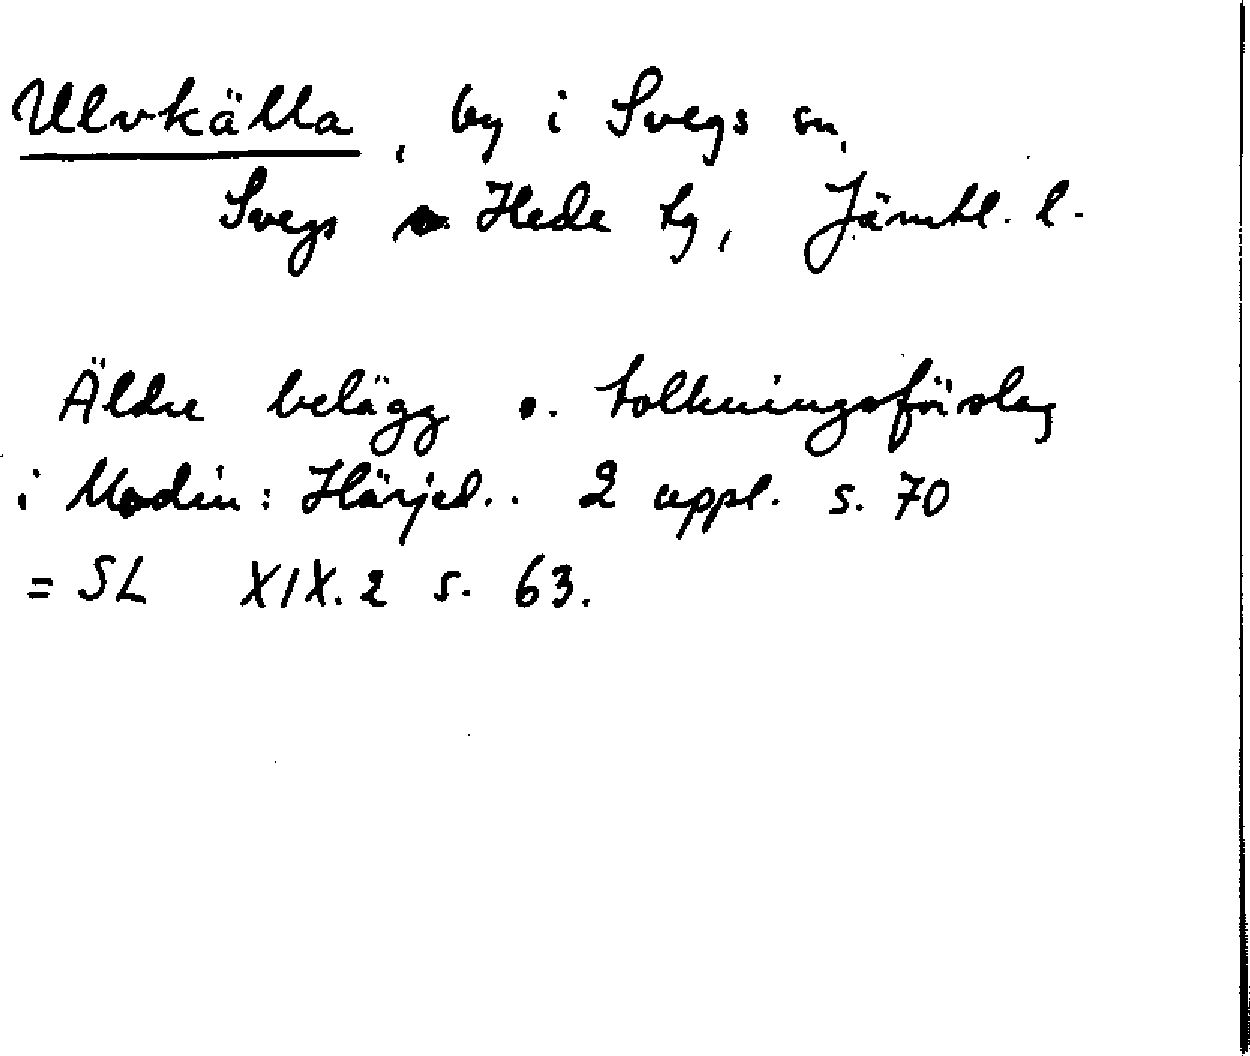 Ulvkälla, by i Svegs sn,
Svegs o. Hede tg, Jämtl. l.
Äldre belägg o. tolkningsförslag
i Modin: Härjed.. 2 uppl. s. 70
= SL XIX. 2 s. 63.